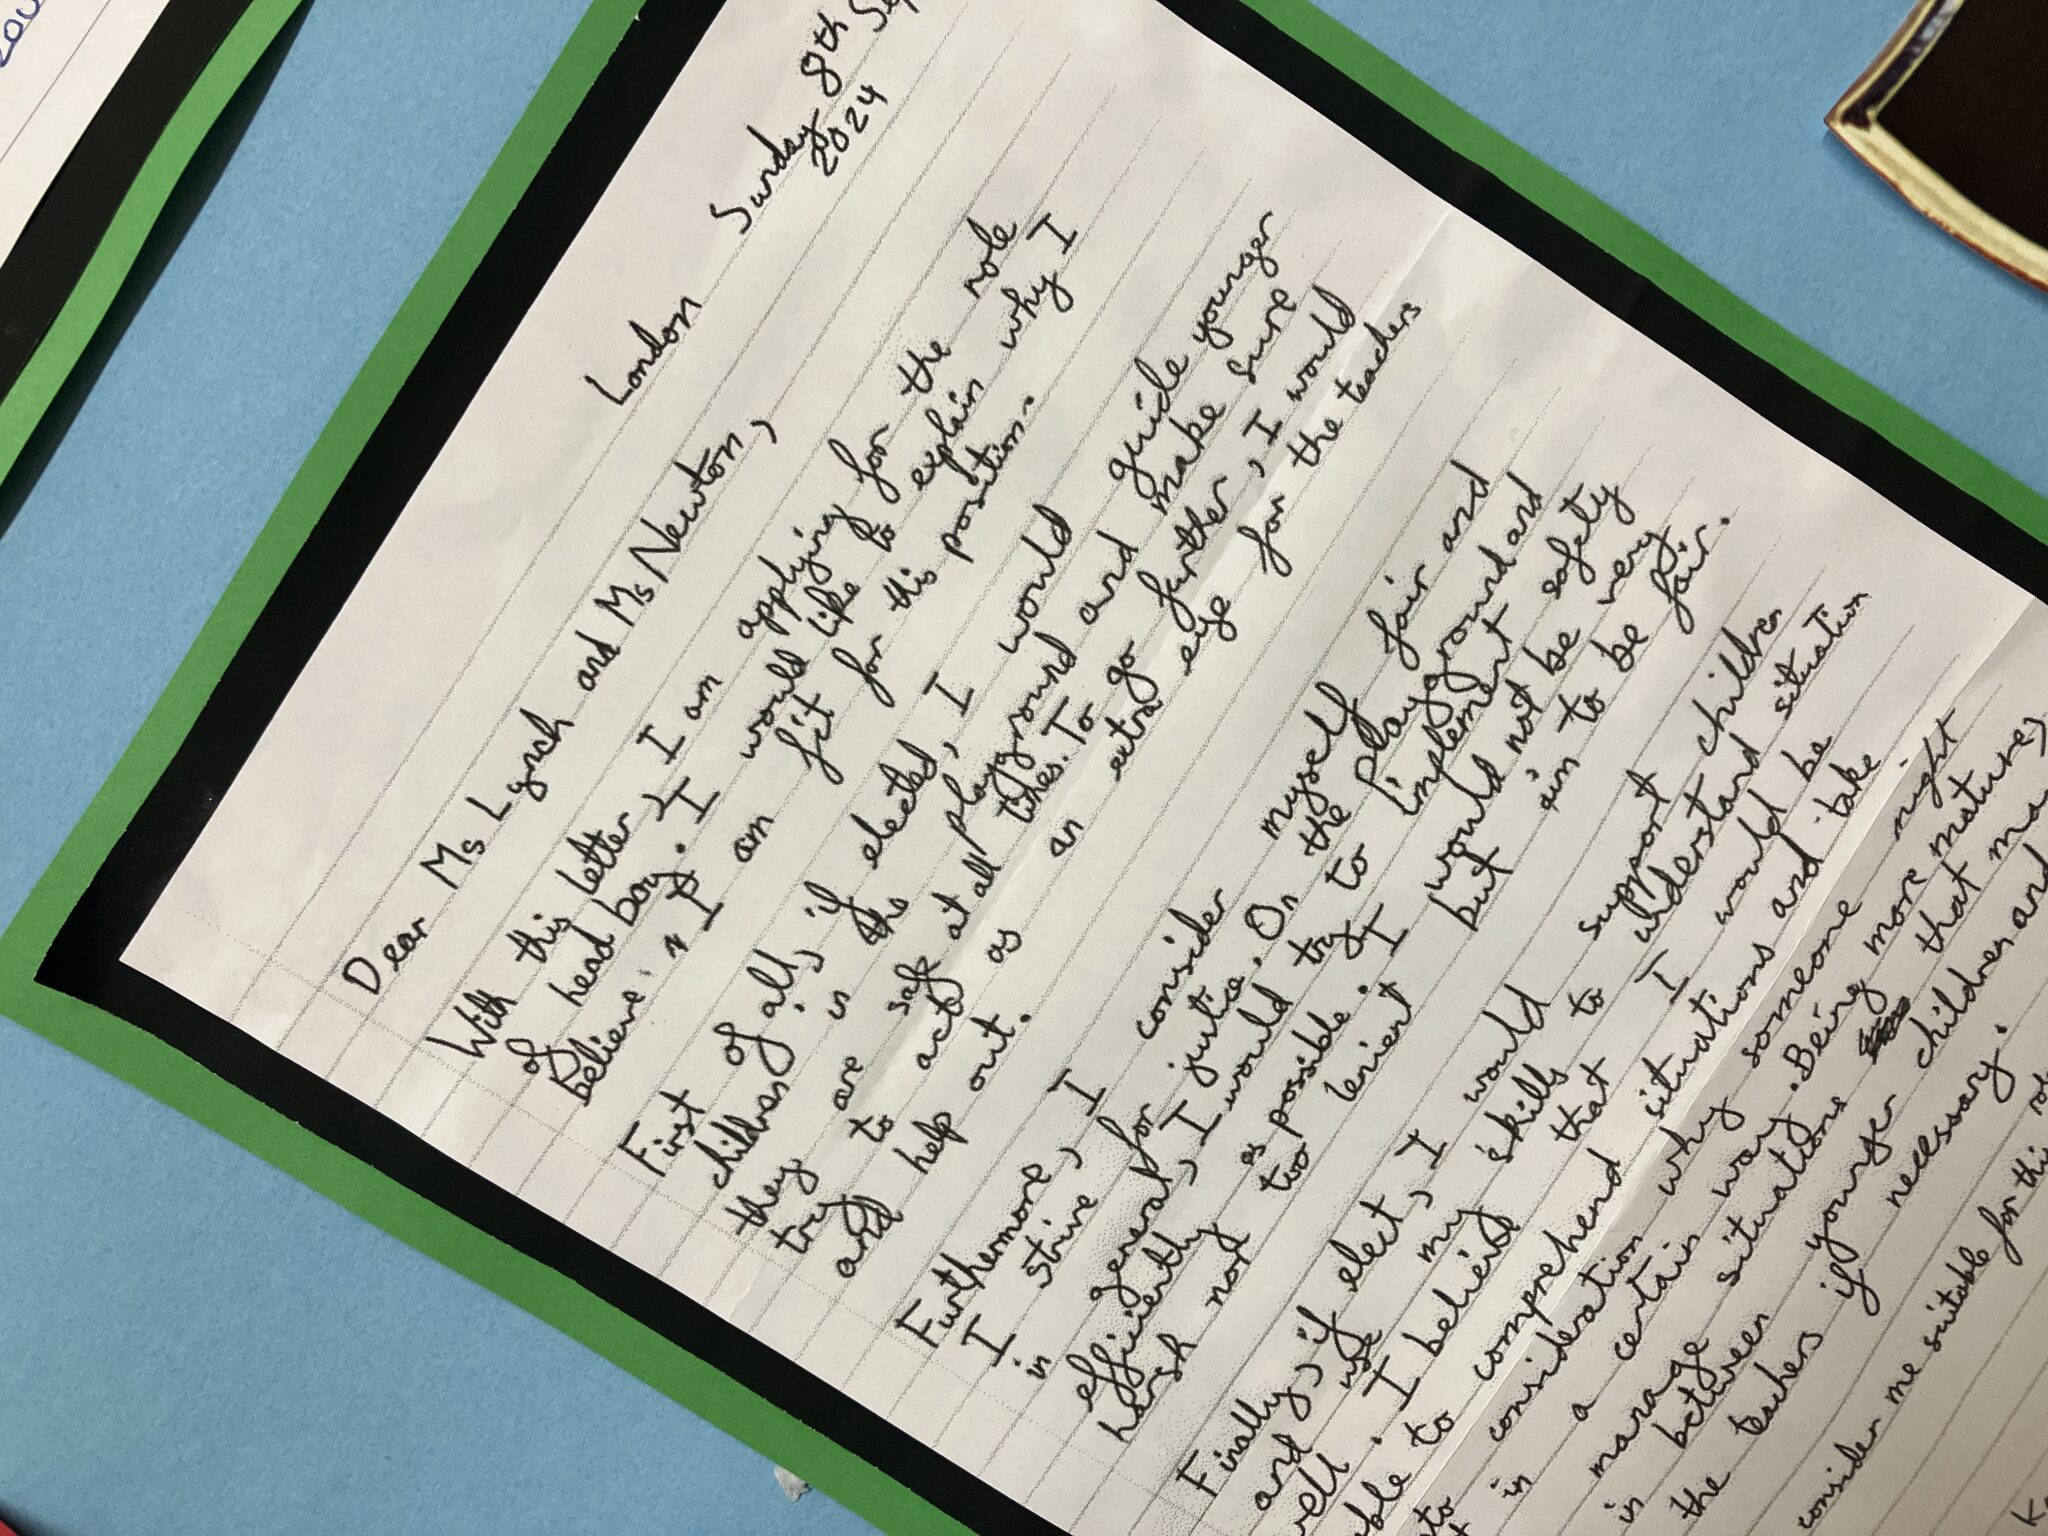 London
Sunday 8th Sep
2024
Dear Ms Lynch and Ms Newton,
With this letter, I am applying for the role
of head boy. I would like to explain why I
believe I am fit for this position.
First of all, if elected, I would guide younger
children in the playground and make sure
they are safe at all times. To go further, I would
try to act as an extra eye for the teachers
and help out.
Furthermore, I consider myself fair and
I strive for justice. On the playground and
in general, I would try to implement safety
efficiently as possible. I would not be very
harsh nor too lenient but aim to be fair.
Finally, if elect, I would support children
and use my skills to understand situation
well. I believe that I would be
able to comprehend situations and take
into consideration why someone might
act in a certain way. Being more mature,
manage situations that ma
in between younger children and
the teachers if necessary.
consider me suitable for this ro